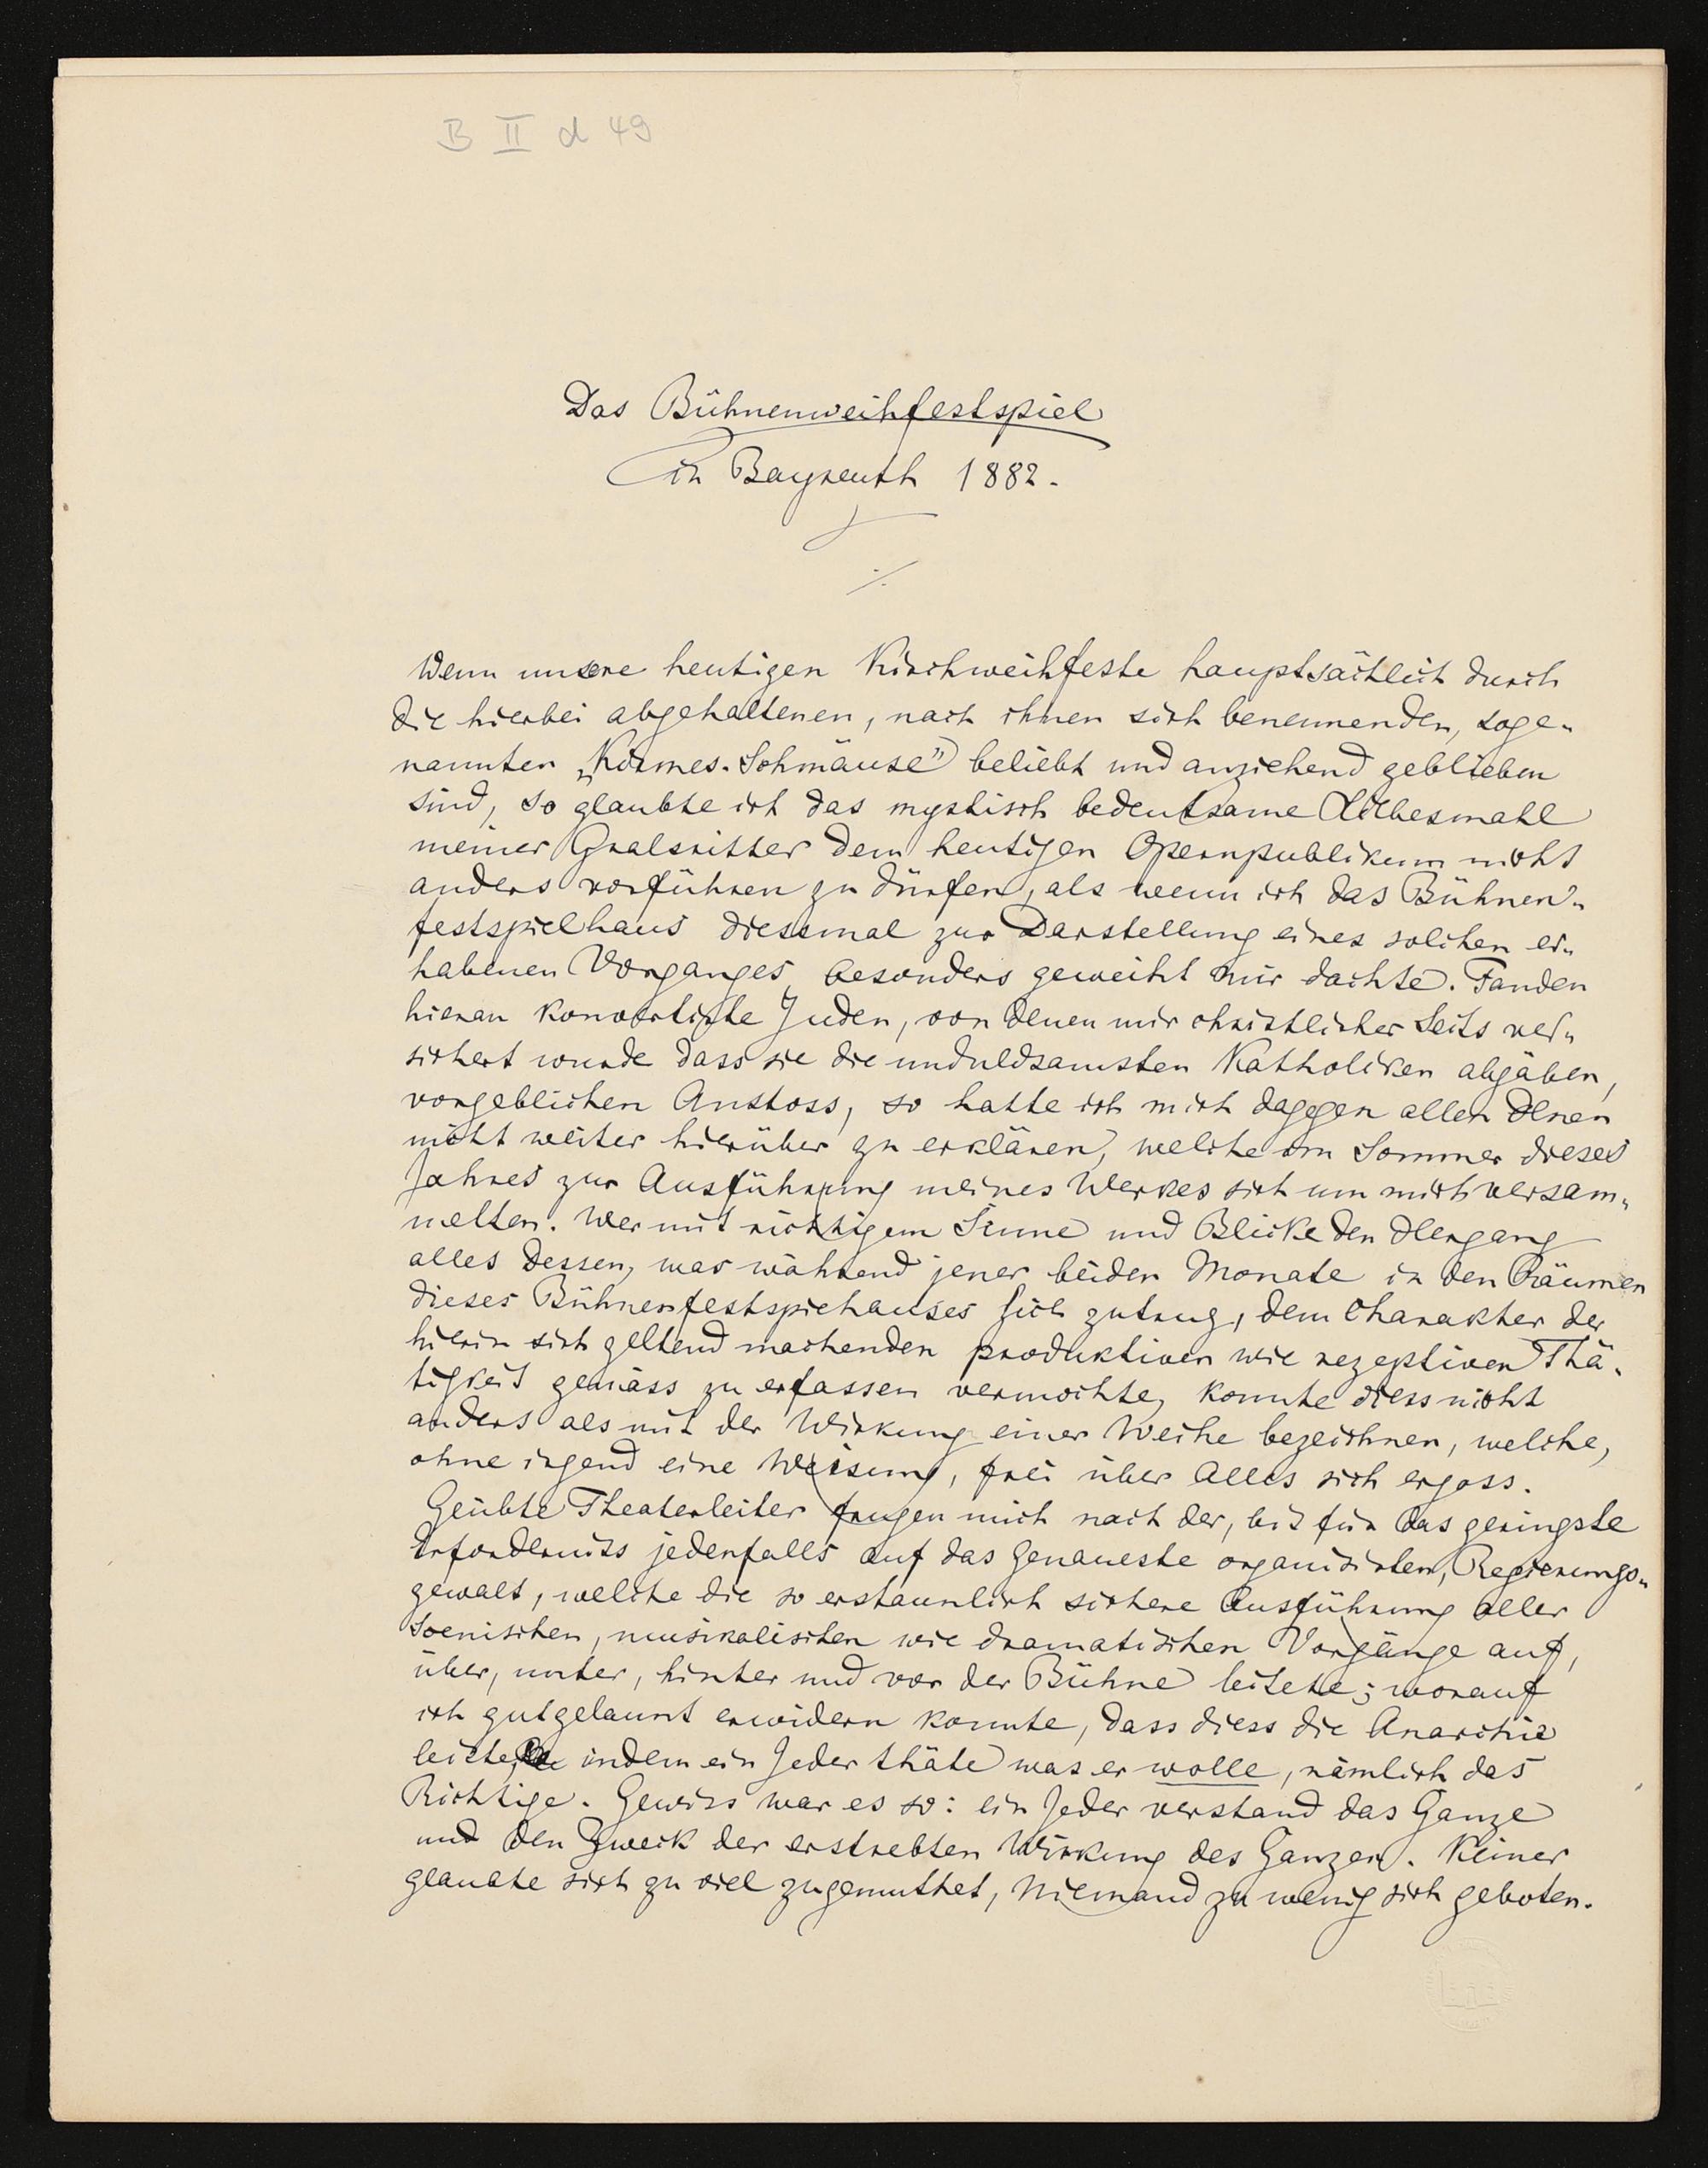 B II d 49
Das Bühnenweihfestspiel
in Bayreuth 1882.
Wenn unsere heutigen Kirchweihfeste hauptsächlich durch
die hierbei abgehaltenen, nach ihnen sich benennenden, soge-
nannten „Kirmes-Schmäuse" beliebt und anziehend geblieben
sind, so glaubte ich das mystisch bedeutsame Liebesmahl
meiner Gralsritter dem heutigen Opernpublikum nicht
anders vorführen zu dürfen, als wenn ich das Bühnen-
festspielhaus diessmal zur Darstellung eines solchen er-
habenen Vorganges besonders geweiht mir dachte. Fanden
hieran konvertirte Juden, von denen mir christlicher Seits ver-
sichert wurde dass sie die unduldsamsten Katholiken abgäben,
vorgeblichen Anstoss, so hatte ich mich dagegen allen Denen
nicht weiter hierüber zu erklären, welche im Sommer dieses
Jahres zur Ausführung meines Werkes sich um mich versam-
melten. Wer mit richtigem Sinne und Blicke den Hergang
alles Dessen, was während jener beiden Monate in den Räumen
dieses Bühnenfestspiehauses sich zutrug, dem Charakter der
hierin sich geltend machenden produktiven wie rezeptiven Thä-
tigkeit gemäss zu erfassen vermochte, konnte diess nicht
anders als mit der Wirkung einer Weihe bezeichnen, welche,
ohne irgend eine Weisung, frei über Alles sich ergoss.
Geübte Theaterleiter frugen mich nach der, bis für das geringste
Erforderniss jedenfalls auf das Genaueste organisirten, Regierungs-
gewalt, welche die so erstaunlich sichere Ausführung aller
scenischen, musikalischen wie dramatischen Vorgänge auf,
über, unter, hinter und vor der Bühne leitete; worauf
ich gutgelaunt erwidern konnte, dass diess die Anarchie
leiste, indem ein Jeder thäte was er wolle, nämlich das
Richtige. Gewiss war es so: ein Jeder verstand das Ganze
und den Zweck der erstrebten Wirkung des Ganzen. Keiner
glaubte sich zu viel zugemuthet, Niemand zu wenig sich geboten.